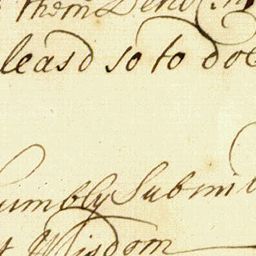 them
leas'd so to do
umbly Submit
Wisdom